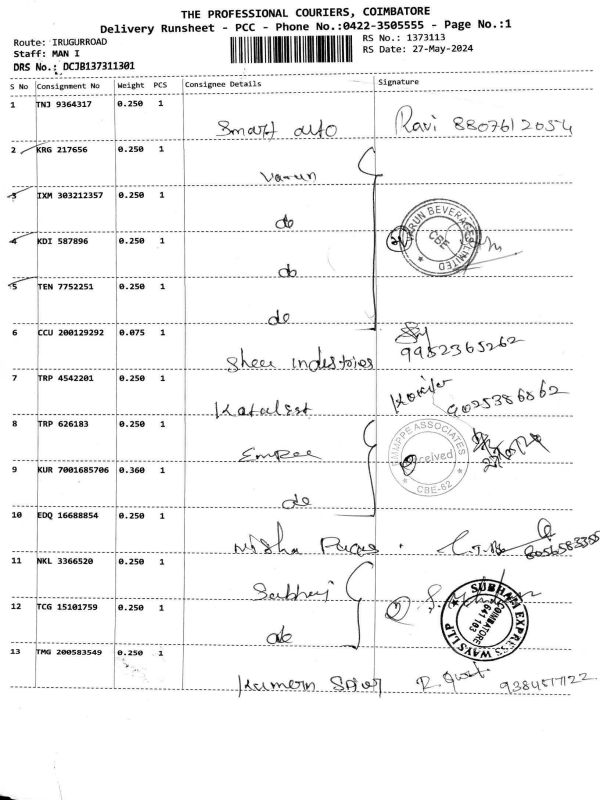 THE PROFESSIONAL COURIERS, COIMBATORE
Delivery Runsheet - PCC - Phone No.:0422-3505555 - Page No.:1
Route: IRUGURROAD
RS No.: 1373113
Staff: MAN I
RS Date: 27-May-2024
DRS No.: DCJB137311301
S No Consignment No Weight PCS Consignee Details Signature
1 TNJ 9364317 0.250 1
Smart auto Ravi 8807612054
2 KRG 217656 0.250 1
Varun
3 IXM 303212357 0.250 1
do
VARUN BEVERAGES LIMITED
CBE
4 KDI 587896 0.250 1
do
5 TEN 7752251 0.250 1
do
6 CCU 200129292 0.075 1
Shree industries 9952365262
7 TRP 4542201 0.250 1
Katalist 9025386862
8 TRP 626183 0.250 1
Empee
EMMPPE ASSOCIATES
Received
CBE-62
9 KUR 7001685706 0.360 1
do
10 EDQ 16688854 0.250 1
Nisha 8056583355
11 NKL 3366520 0.250 1
SUBHAM EXPRESS WAYS LLP
COIMBATORE
641 103
12 TCG 15101759 0.250 1
do
13 TMG 200583549 0.250 1
R.